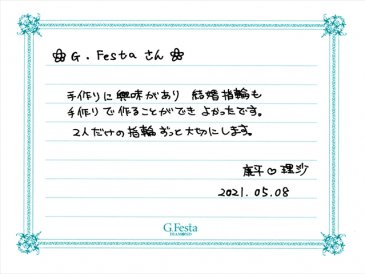 ❀ G. Festa さん ❀
手作りに興味があり 結婚指輪も
手作りで作ることができ よかったです。
2人だけの指輪ずっと大切にします。
康平♡理沙
2021.05.08
G.Festa
DIAMOND